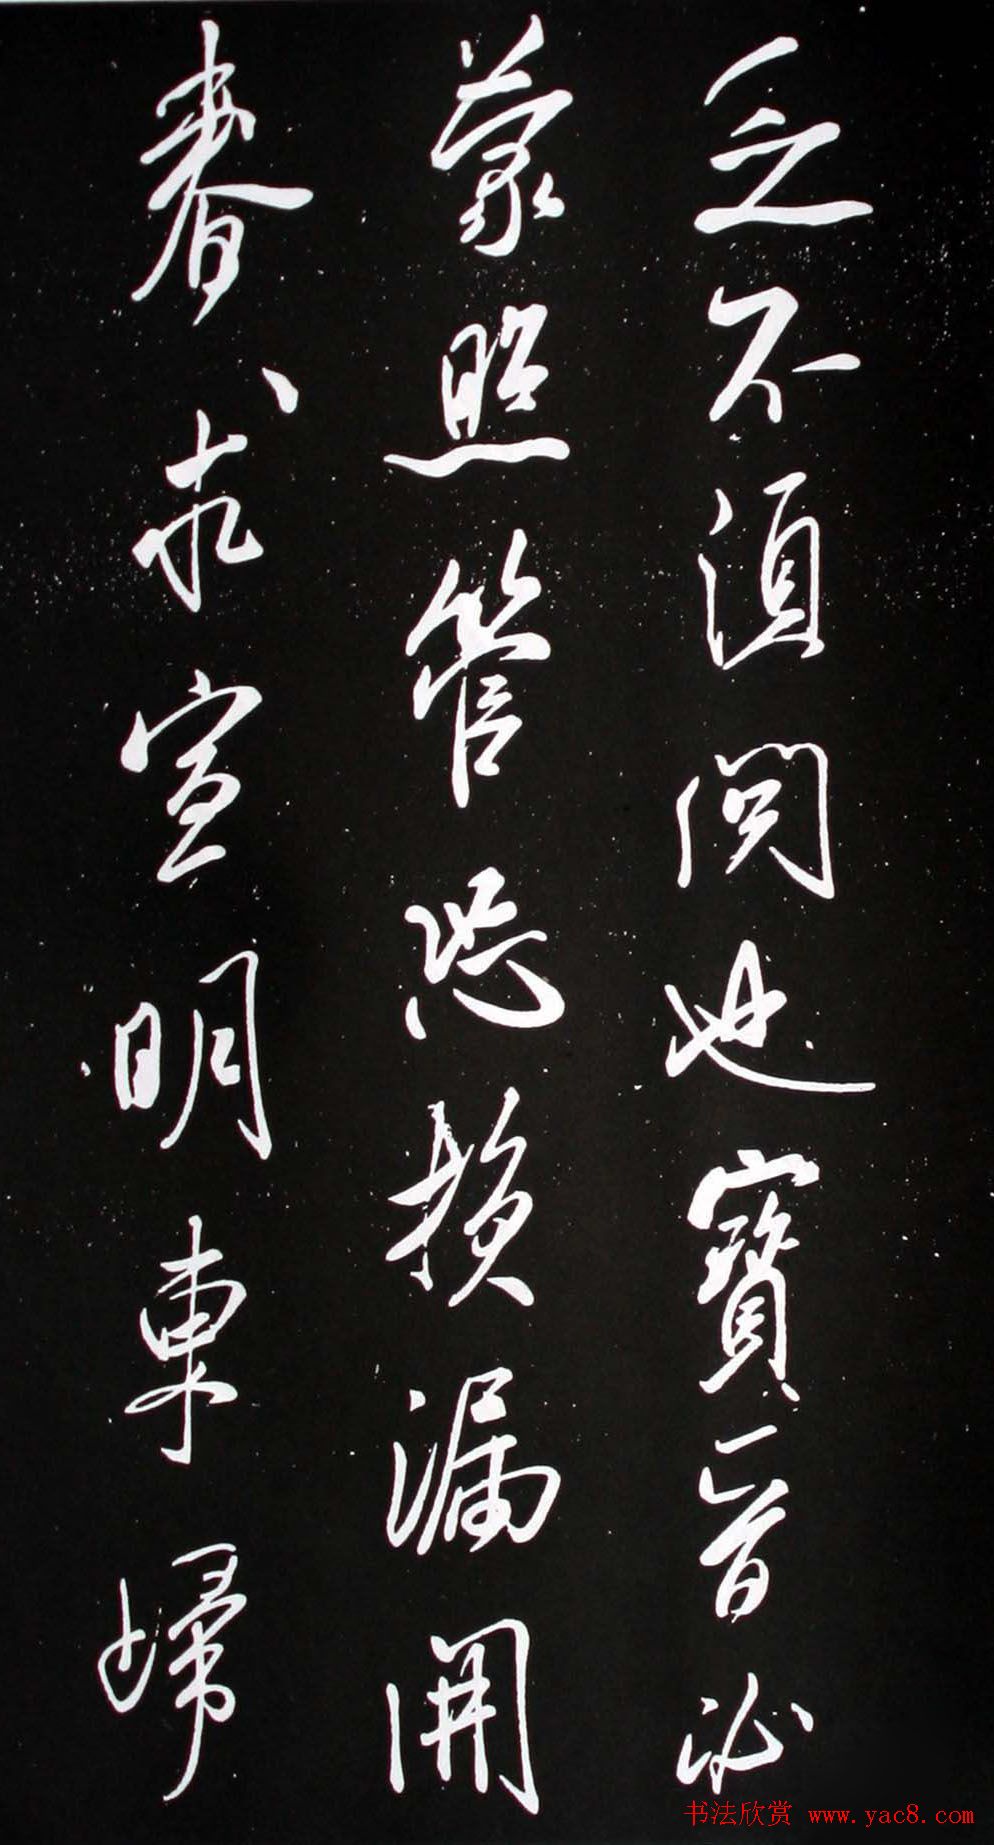 乏不須閱也寶晉必
蒙照管恐損漏開
春求宣明東歸
书法欣赏 www.yac8.com